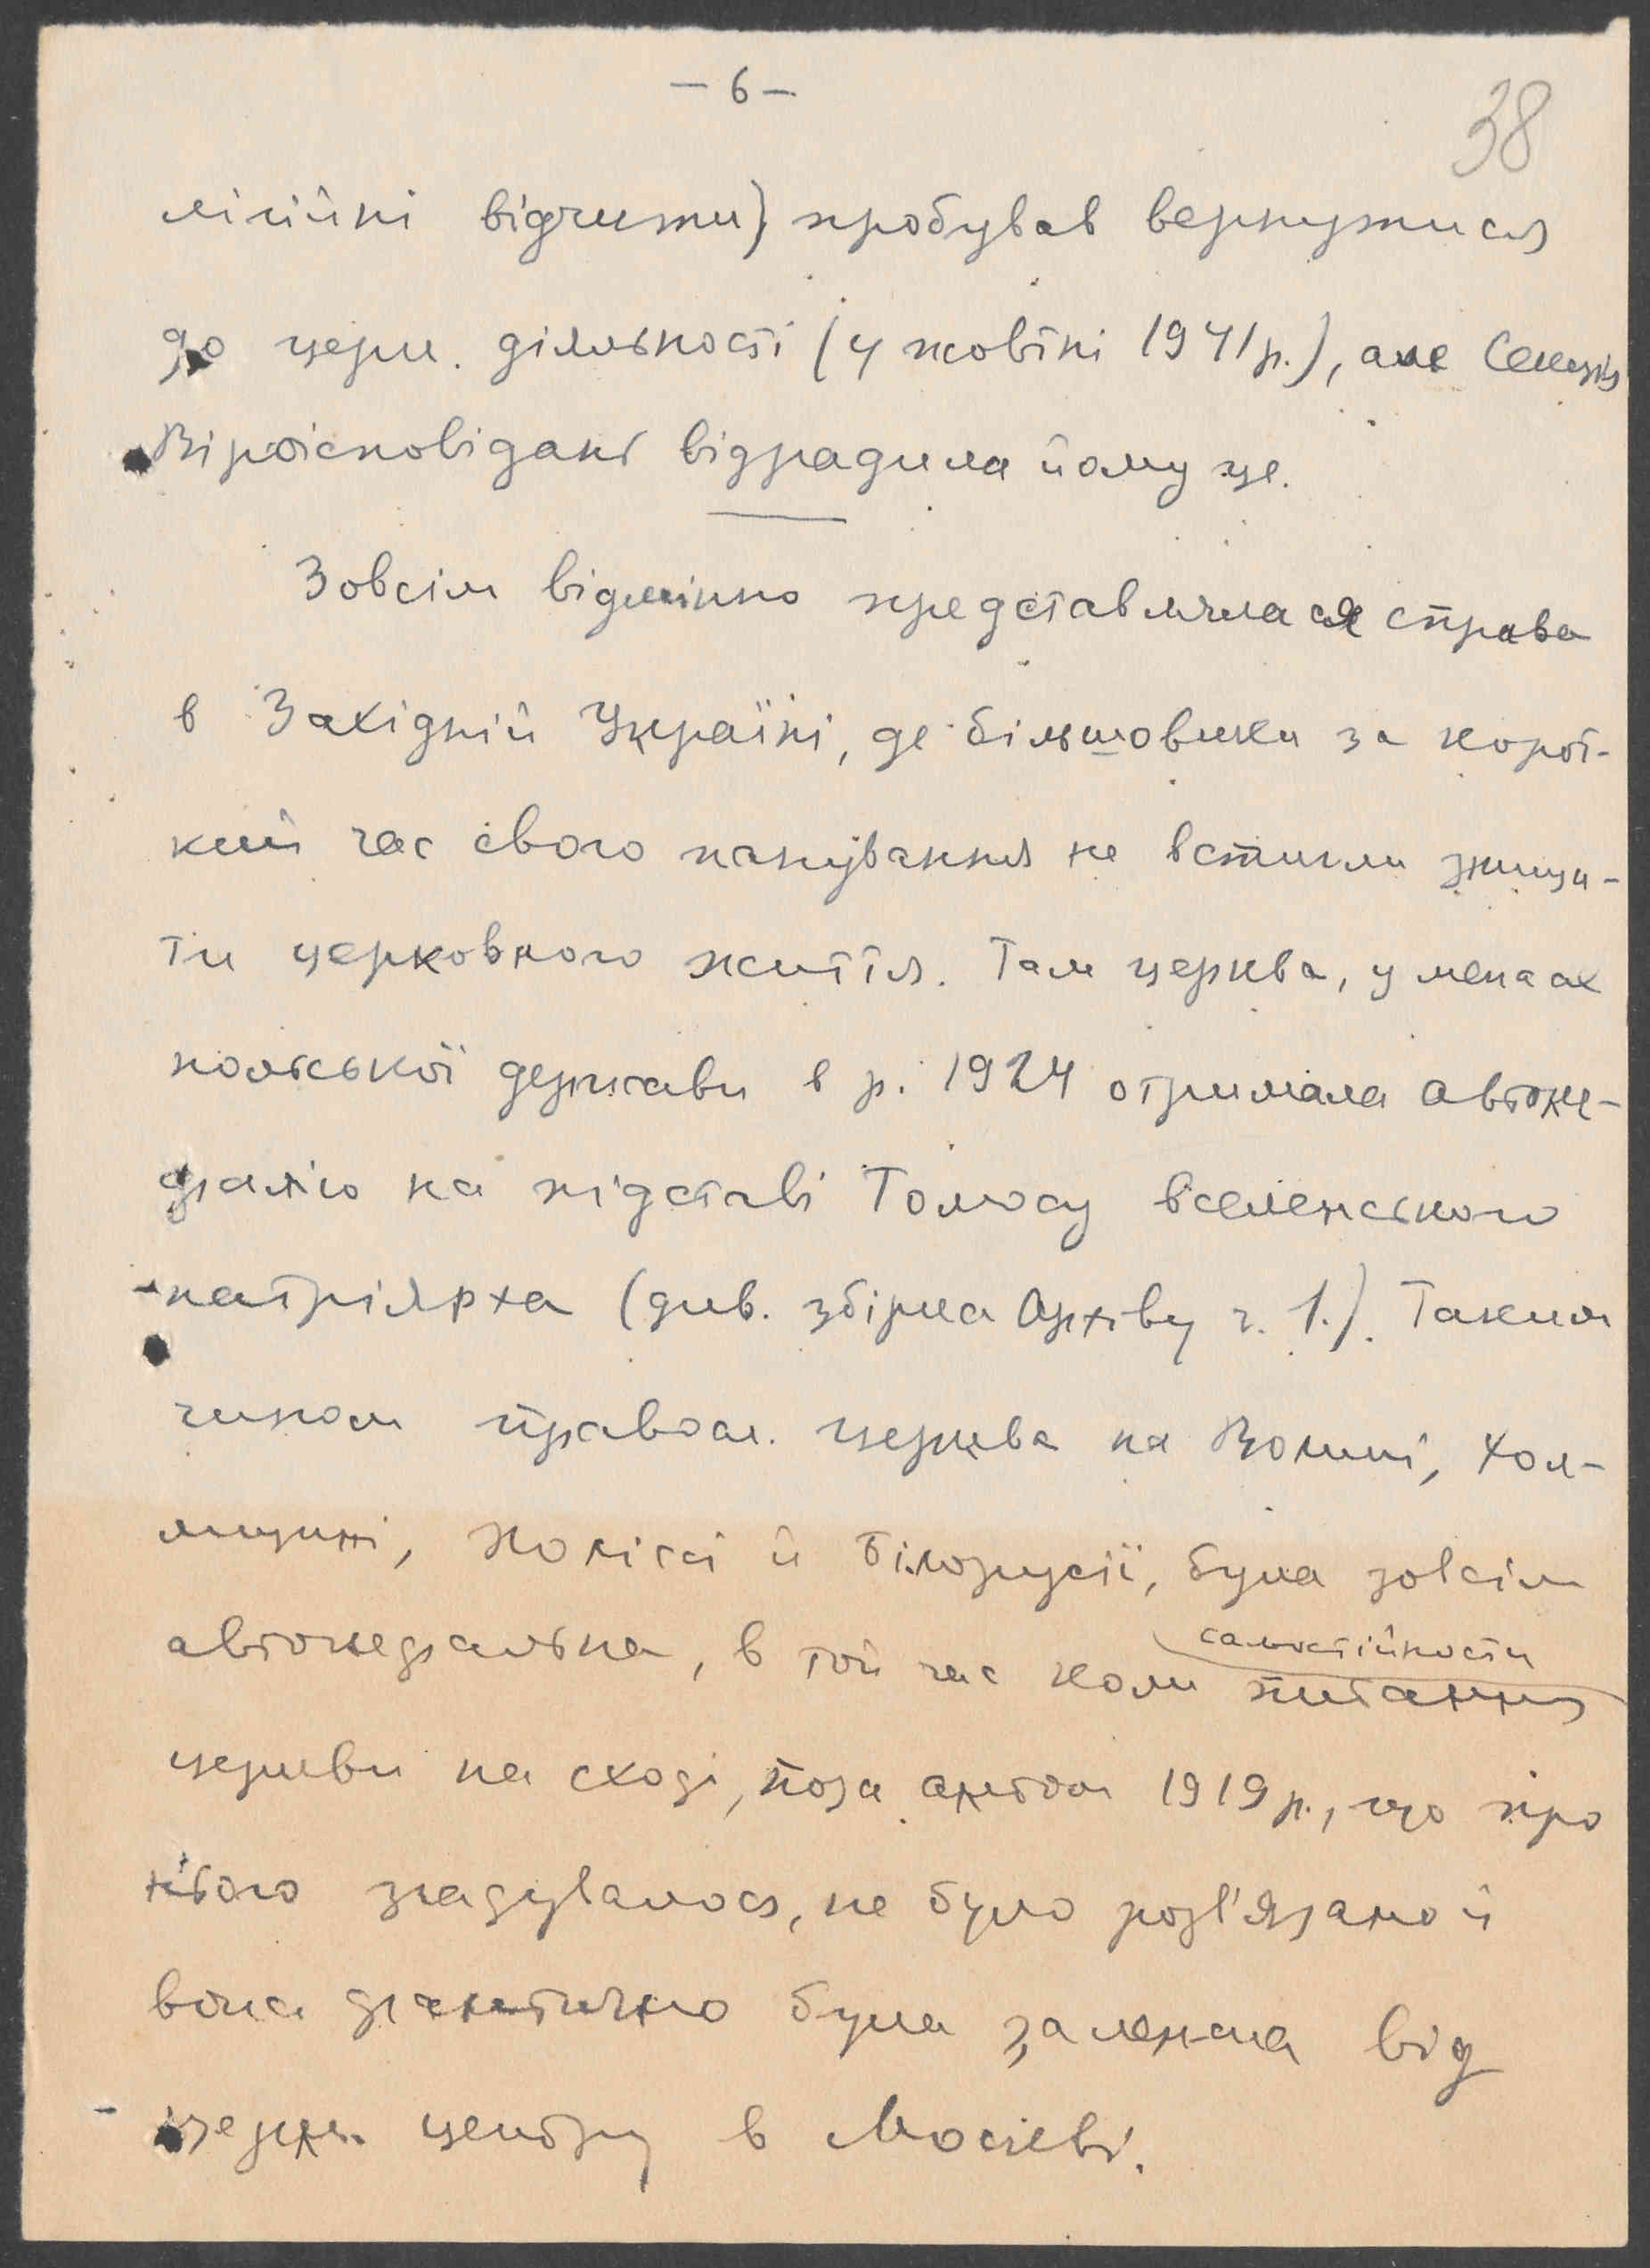 - 6 -
38
лігійні відчити) пробував вернутися
до церк. діяльності (у жовтні 1941 р.), але Секція
Віроісповідань відрадила йому це.
Зовсім відмінно представлялася справа
в Західній Україні, де большовики за корот-
кий час свого панування не встигли знищи-
ти церковного життя. Там церква, у межах
польської держави в р. 1924 отримала автоке-
фалію на підставі Томосу вселенського
патріярха (див. збірка Архіву ч. 1.). Таким
чином правосл. церква на Волині, Хол-
мщині, Поліссі й Білорусії, була зовсім
автокефальна, в той час коли питання
самостійности
церкви на сході, поза актом 1919 р., що про
нього згадувалося, не було розв'язано й
вона фактично була залежна від
церк. центру в Москві.